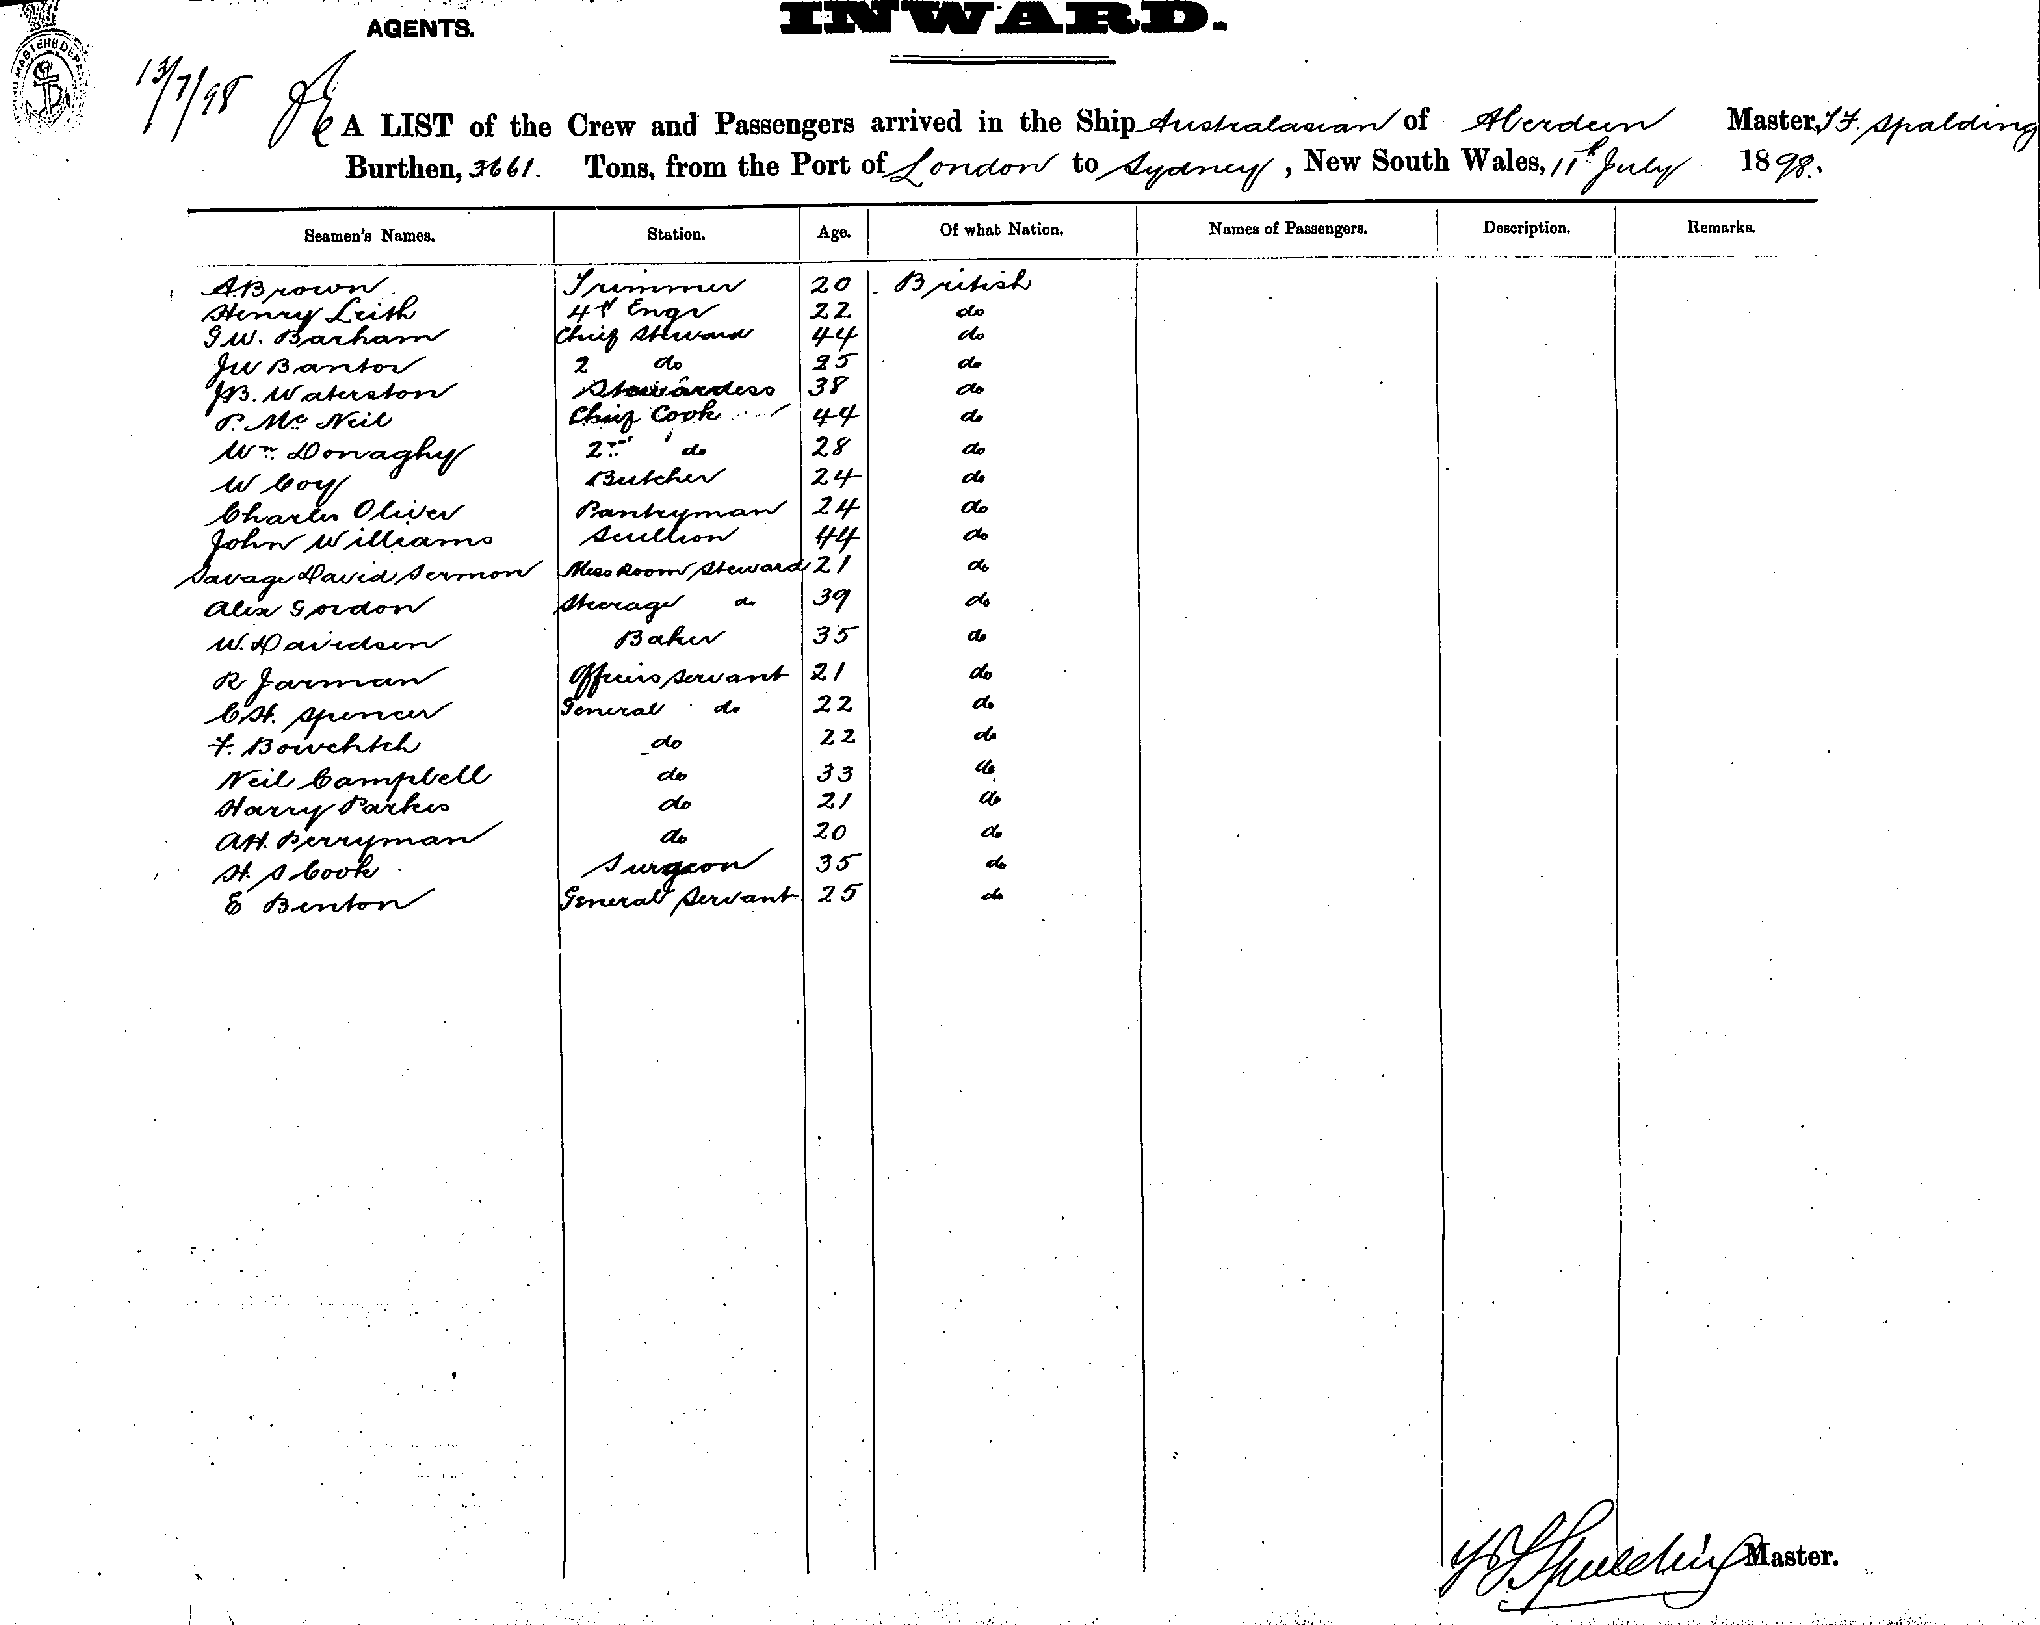 AGENTS.
INWARD.
13/7/98
A LIST of the Crew and Passengers arrived in the Ship Australasian of Aberdeen Master, T F. Spalding
Burthen, 3661. Tons, from the Port of London to Sydney, New South Wales, 11th July 1898.
Seamen's Names. Station. Age. Of what Nation. Names of Passengers. Description. Remarks.
A. Brown Trimmer 20 British
Henry Leith 4th Engr 22 do
G.W. Barham Chief Steward 44 do
JW Bantor 2 do 25 do
JB. Waterston Stewardess 38 do
P. Mc Neil Chief Cook 44 do
Wm. Donaghy 2nd do 28 do
W Coy Butcher 24 do
Charles Oliver Pantryman 24 do
John Williams Scullion 44 do
Savage David Sermon Mess Room Steward 21 do
Alex Gordon Steerage do 39 do
W. Davidson Baker 35 do
R Jarman Officers Servant 21 do
C.H. Spencer General do 22 do
F. do 22 do
Neil Campbell do 33 do
Harry Parkes do 21 do
AH. Berryman do 20 do
H. S Cook Surgeon 35 do
E Benton General Servant 25 do
Spalding Master.